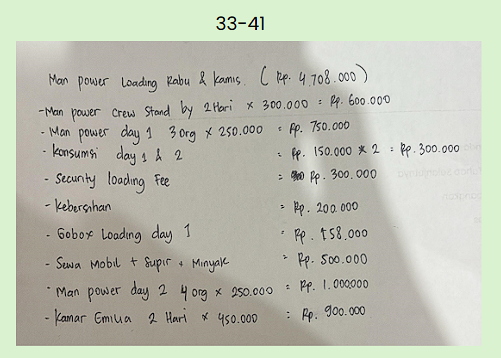 33-41
Man power Loading Rabu & Kamis. (Rp. 4.708.000)
- Man power crew stand by 2 Hari × 300.000 = Rp. 600.000
- Man power day 1 3 org × 250.000 = Rp. 750.000
- Konsumsi day 1 & 2 = Rp. 150.000 * 2 = Rp. 300.000
- Security loading Fee = Rp. 300.000
- Kebersihan = Rp. 200.000
- Gobox Loading day 1 = Rp. 158.000
- Sewa Mobil + Supir + Minyak = Rp. 500.000
- Man power day 2 4 org × 250.000 = Rp. 1.000.000
- Kamar Emilia 2 Hari × 450.000 = Rp. 900.000